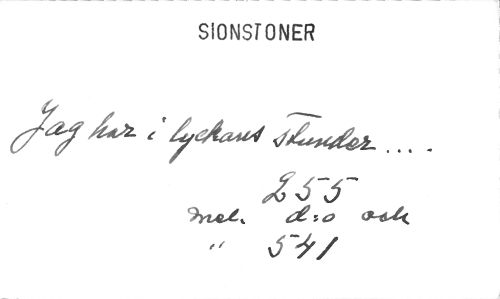 SIONSTONER
Jag har i lyckans stunder....
255
mel. d:o och
" 541